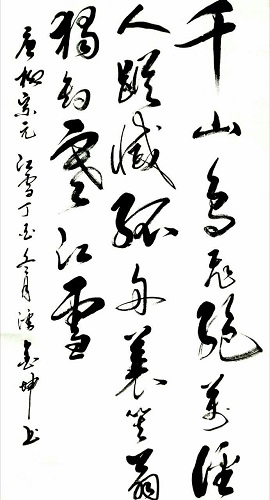 千山鸟飛絕万徑
人蹤滅孤舟蓑笠翁
獨釣寒江雪
唐柳宗元江雪丁酉冬月